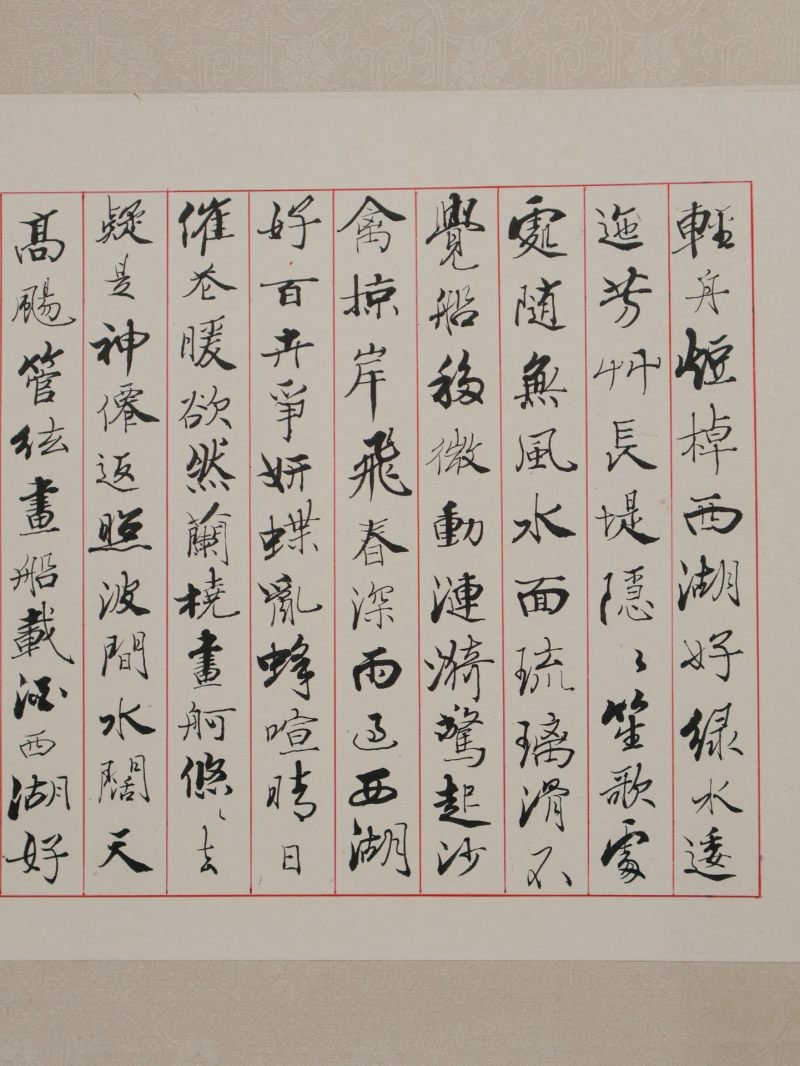 輕舟短棹西湖好綠水逶
迤芳艸長堤隱〻笙歌處
處随無風水面琉璃滑不
覺船移微動漣漪驚起沙
禽掠岸飛春深雨過西湖
好百卉爭妍蝶亂蜂喧晴日
催花暖欲然蘭橈畫舸悠〻去
疑是神僊返照波間水闊天
髙颺管絃畫船載酒西湖好